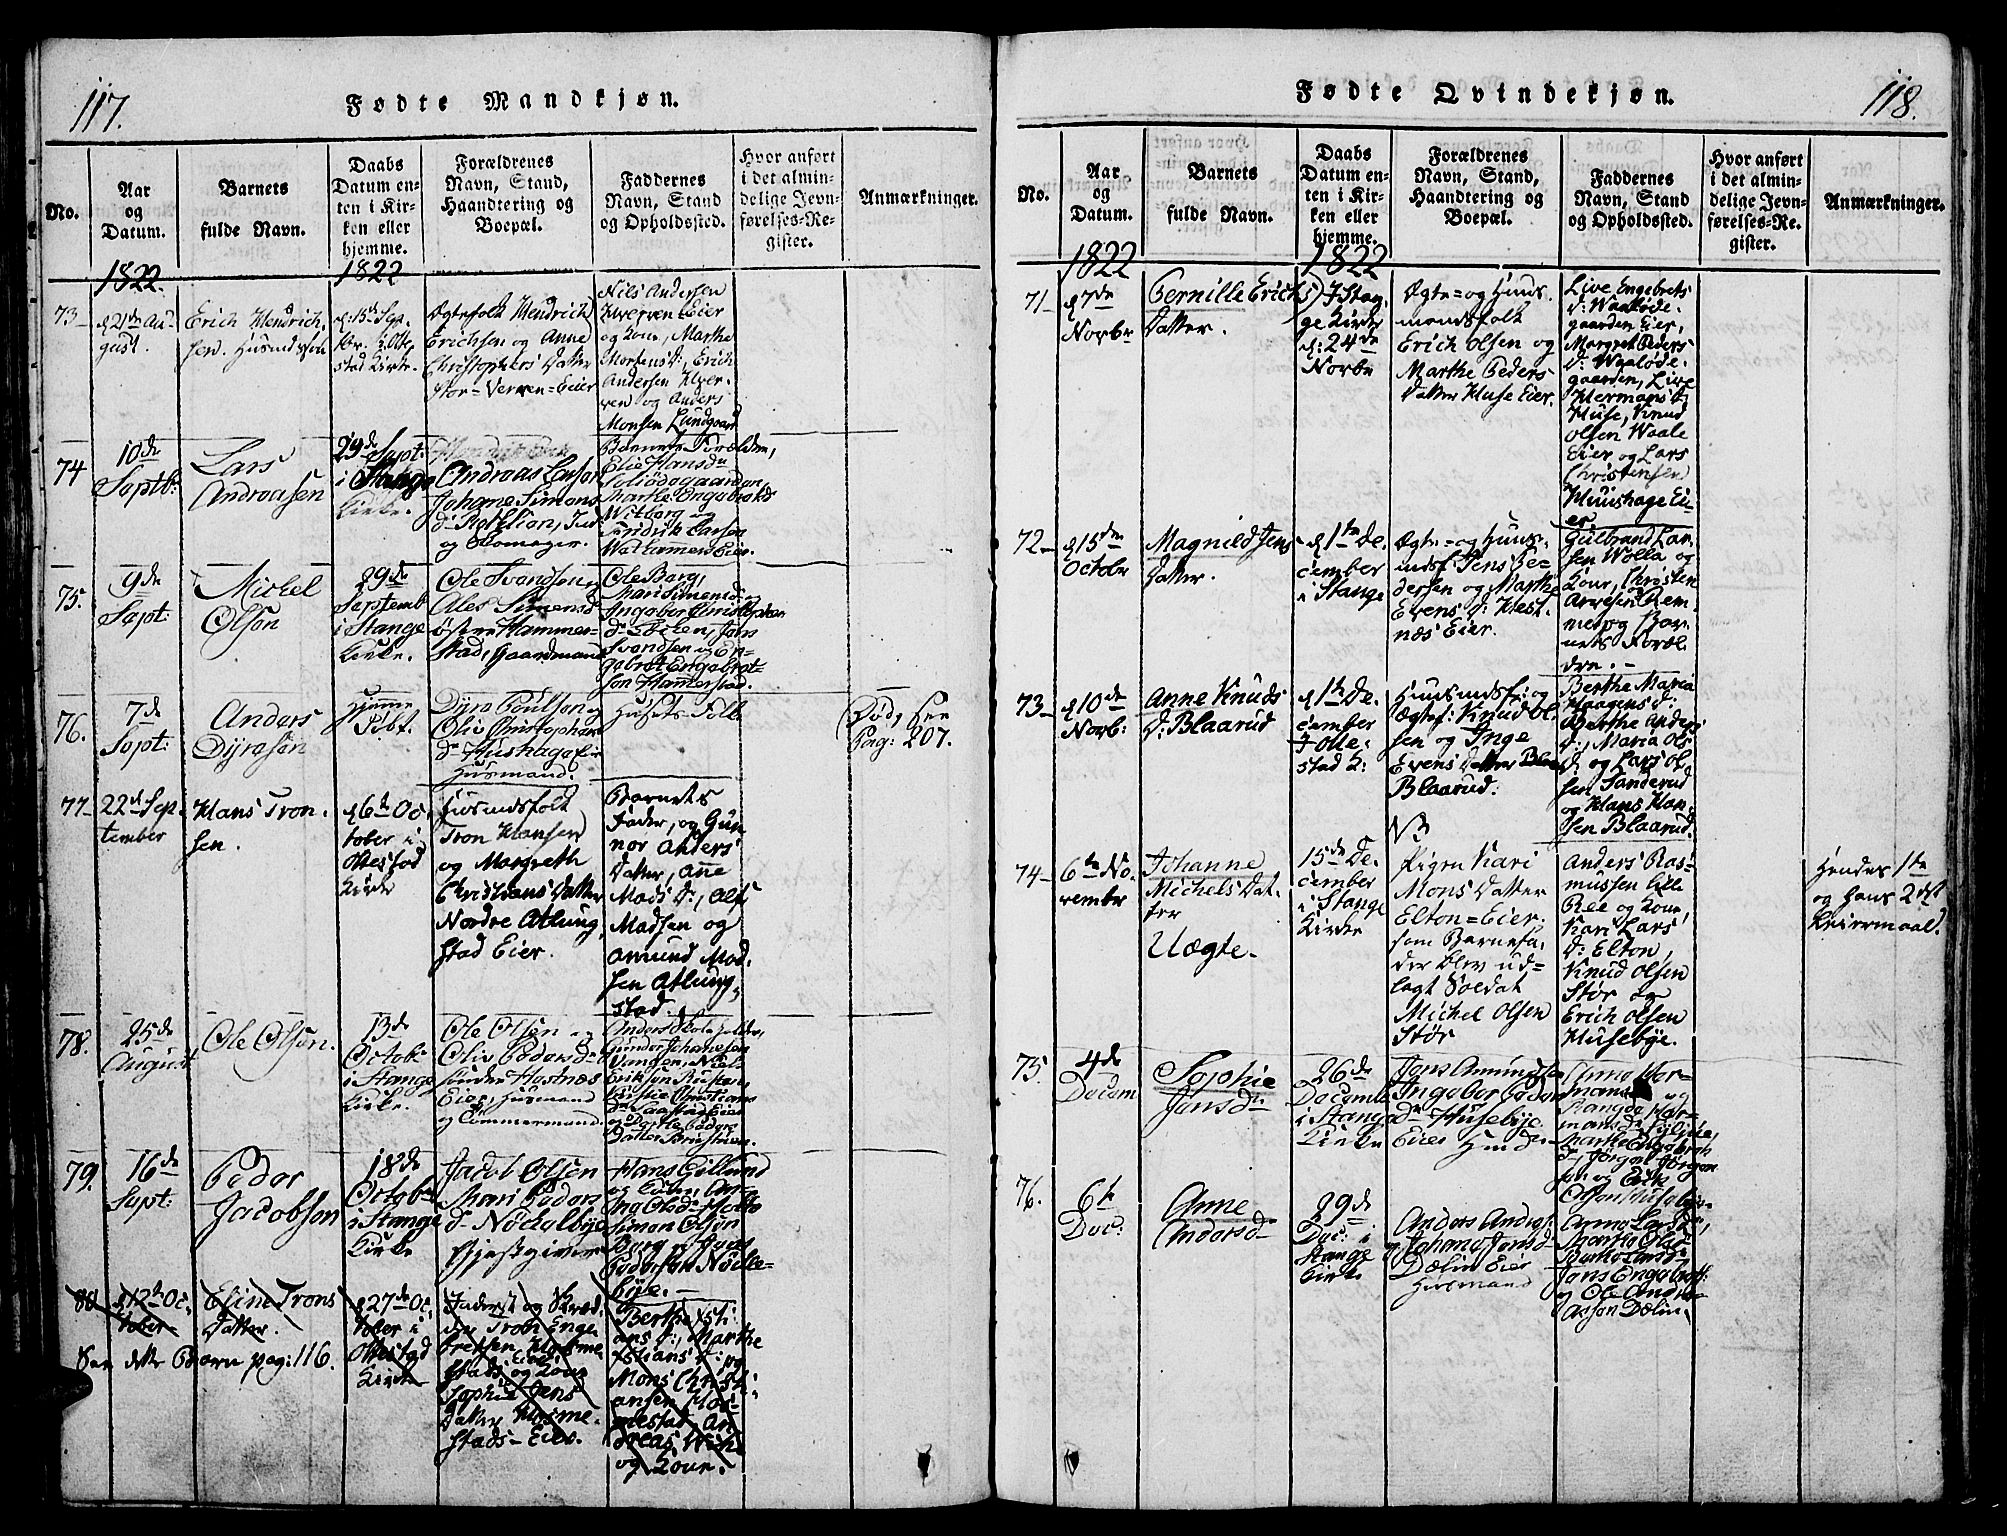 117.
Fødte Mandkjøn.
No.
Aar
og
Datum.
Barnets
fulde Navn.
Daabs
Datum en-
ten i Kir-
ken eller
hjemme.
Forældrenes
Navn, Stand,
Haandtering og
Boepæl.
Faddernes
Navn, Stand
og Opholdssted.
Hvor anført
i det almin-
delige Jevn-
førelses-Re-
gister.
Anmærkninger.
1822.
1822
73
d. 21de Au-
gust.
Erich Hendrich-
sen.
d: 15de Sep-
br. i Otte-
stad Kirke.
Ægtefolk Hendrich
Erichsen og Anne
Christophers Datter
Stor-Verven-Eier
Niels Andersen
Hverven Eier
og Kone, Marthe
Mortens D:, Erich
Andersen Hver-
ven og Anders
Monsen Lundgaard
74
10de
Septb:
Lars
Andreasen
29de Sept:
i Stange
Kirke.
Andreas Larsen
Johane Simons
og Skomager.
Barnets Forældre,
Elie Hansdr
Marthe Engebrets
Witberg og
Fredrik Larsen
75.
9de
Sept:
Michel
Olsen
29de
Septemb
i Stange
Kirke.
Ole Svendsen
Ales Simensd
østre Hammer-
stad, Gaardmand
Ole Berg,
Mari Simensd: og
Ingebor Christophers
Svendsen og En-
gebret Engebret-
sen Hamerstad.
76.
7de
Sept:
Anders
Dyresen
Hjemme
Døbt.
Dyre Poulsen og
Oliv Christophers
dr Hushage Eie
Husmand.
Husets Folk
Død, see
Pag: 207.
77
22de Sep-
tember
Hans Tron-
sen.
d. 6te Oc-
tober i
Ottestad
Kirke
Husmdsfolk
Tron Hansen
og Margreth
Christians Datter
Nordre Atlung-
stad Eier.
Barnets
Fader, og Gun-
nor Anders
Datter, Anne
Mads D:, Ole
Madsen og
Amund Mad-
sen Atlung-
stad.
78.
25de
August
Ole Olsen.
13de
Octob:
i Stange
Kirke.
Ole Olsen og
Oliv Pedersd:
søndre Hestnæs
Eier, Husmand
og Tømmermand.
Anders Skoleholder,
Gunder Johanesen
79.
16de
Sept:
Peder
Jacobsen
18de
Octob:
i Stange
Kirke
Jacob Olsen
Mari Peders
d: Nødalbye
Gjestgiver
Hans Gillund
og Kone,
Simon Olsen
Berg og
bye.
80
d. 12te Oc-
tober
Eline Trons
Datter.
d. 27de Oc-
tober i
Ottestad
Kirke
Tron Enge-
bretsen Hosme-
stads Eier og Kone
Sophie Jens
Datter Hosme-
stads-Eier.
Berthe Xsti-
ans D:, Marthe
Xstians D: og
Mons Christi-
ansen Hos-
mestad, An-
dreas
og Kone.
See dette Barn pag: 116.
118.
Fødte Qvindekjøn.
No.
Aar
og
Datum.
Barnets
fulde Navn.
Daabs
Datum en-
ten i Kir-
ken eller
hjemme.
Forældrenes
Navn, Stand,
Haandtering og
Boepæl.
Faddernes
Navn, Stand
og Opholdssted.
Hvor anført
i det almin-
delige Jevn-
førelses-Re-
gister.
Anmærkninger.
1822
1822
71
d. 7de
Novbr
Pernille Erichs
Datter.
I Stan-
ge Kirke
d: 24de
Novbr
Ægte- og Huus-
mandsfolk
Erich Olsen og
Marthe Peders
Datter Huse Eier.
Live Engebrets
D: Waaløde-
gaarden Eier,
Margret Peders
D: Waaløde-
gaarden, Live
Hermans D:
Huse, Knud
Olsen Waale
Eier og Lars
Christensen
Huushage Ei-
er
72
d. 15de
Octobr
Magnild Jens
Datter.
d. 1te De-
cember
i Stange
Ægte- og Huus-
mdsf Jens Pe-
dersen og Marthe
Evens D: Hest-
næs Eier.
Gulbrand Lar-
sen Wolla og
Kone, Christen
Arvesen Rem-
me og Bar-
nets Foræl-
dre.
73
d. 10de
Novb:
Anne Knuds
D: Blaarud
d. 1te De-
cember
I Otte-
stad K:
Huusmdsf: og
Ægtef: Knud Ol-
sen og Inge
Evens Datter
Blaarud.
Berthe Maria
Haagens D:
Berthe Anders
D:, Maria Ols
D: og Lars Ol-
sen Sanderud
og Hans Han-
sen Blaarud.
74
6te No-
vember
Johanne
Michels Dat-
ter
Uægte.
15de De-
cember
i Stange
Kirke
NB
Pigen Kari
Mons Datter
Elton-Eier.
som Barnefa-
der blev ud-
lagt Soldat
Michel Olsen
Stør
Anders Ras-
mussen lille
Ree og Kone,
Kari Lars
D: Elton,
Knud Olsen
Stør og
Erich Olsen
Husebye.
Hendes 1te
og hans 2det
Leiermaal.
75.
4de
Decem
Sophie
Jensdr
26de
Decemb
i Stange
Kirke
Jens Amundsen
Ingebor Peders
dr Husebye
Eier
Anne Her-
mans og
Marthe Engebrets
D, Jørgen Jørgen-
sen og Erik
Olsen Husebye
76.
6te
Dec:
Anne
Andersd
29de
Dec: i
Stange
Kirke
Anders Anders:
og Johane Jensd
Dælin Eier
Husmand
Anne Larsdr,
Marthe Olsd
Berthe Larsd
Jens Engebrets:
og Ole Andre-
assen Dælin.